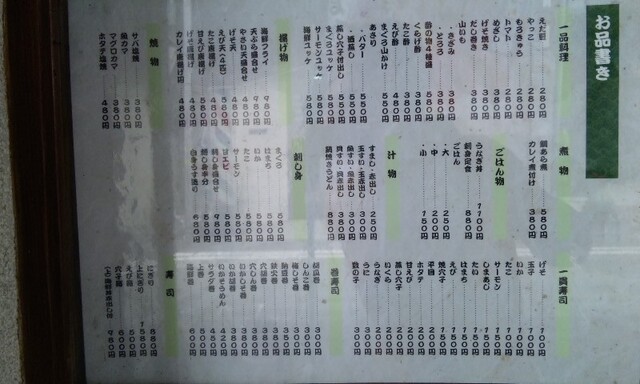 お品書き
一品料理
えだ豆 280円
やっこ 280円
もろきゅう 280円
トマト 280円
めざし 380円
げそ焼き 380円
だし巻き 380円
山いも
・きざみ 380円
・とろろ 380円
酢の物4種盛 580円
くらげ酢 380円
たこ酢 380円
えび酢 480円
まぐろ山かけ 580円
あさり
・バター 580円
・酒蒸し 580円
蒸し穴子付出し 580円
まぐろユッケ 580円
サーモンユッケ 580円
海鮮ユッケ 580円
揚げ物
海鮮フライ 980円
天ぷら盛合せ 980円
やさい天盛合せ 480円
げそ天 480円
えび天(4匹) 580円
たこ唐揚げ 480円
甘えび唐揚げ 580円
げそ唐揚げ 480円
カレイ唐揚げ 480円
焼物
サバ塩焼 380円
魚カマ 380円
マグロカマ 380円
ホタテ塩焼 480円
煮物
鯛あら煮 580円
カレイ煮付け 380円
ごはん物
うなぎ丼 1100円
刺身定食 880円
ごはん
・大 250円
・中 200円
・小 150円
汁物
すまし・赤出し 250円
玉すい・玉赤出し 300円
魚すい・魚赤出し 300円
貝すい・貝赤出し 380円
鍋焼きうどん 880円
刺し身
まぐろ 580円
はまち 580円
いか 580円
たこ 580円
サーモン 580円
甘エビ 580円
刺し身盛合せ 980円
刺し身半分 580円
白身うす造り 680円
一貫寿司
げそ 100円
玉子 100円
いか 100円
たこ 100円
サーモン 150円
しまあじ 150円
たい 150円
はまち 150円
えび 150円
焼穴子 150円
平目 200円
ホタテ 200円
甘えび 200円
蒸し穴子 200円
いくら 200円
うなぎ 200円
うに 300円
数の子 300円
巻寿司
胡瓜巻 300円
しんこ巻 300円
梅しそ巻 300円
納豆巻 350円
鉄火巻 380円
穴胡巻 380円
穴しん巻 380円
いかしそ巻 380円
いか胡巻 380円
いかそうめん 420円
サラダ巻 450円
上巻 500円
海鮮巻 600円
寿司
にぎり 880円
上にぎり 1580円
えび箱 500円
穴子箱 600円